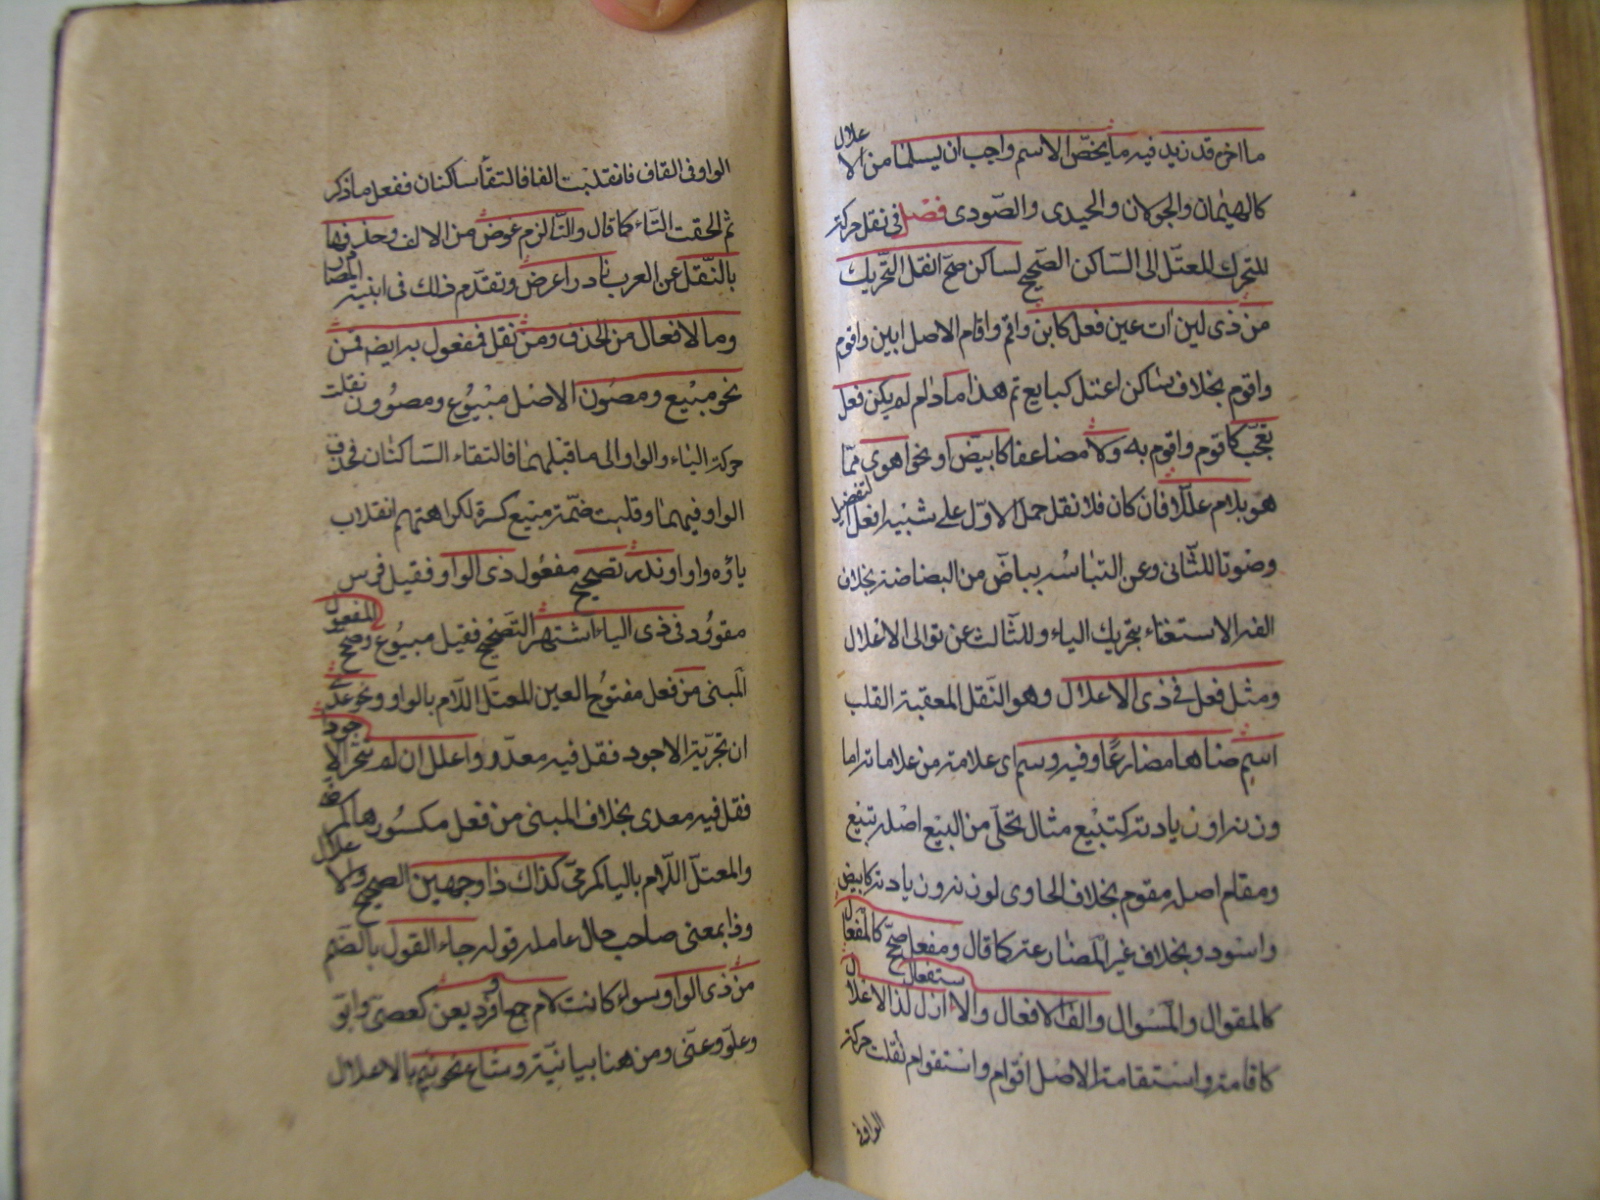 ما اخره قد زيد فيه ما يخصّ الاسم واجب ان يسلما من الاعلال
كالهيمان والجولان والحيدى والصّودى فصل فى نقل حركة
المتحرك المعتلّ الى السّاكن الصحيح لساكن صحّ انقل التّحريك
من ذى لين ات عين فعل كابن واقم واقام الاصل ابين واقوم
واقوم بخلاف ساكن اعتل كبايع ثم هذا ما دام لم يكن فعل
تعجّب كاقوم واقوم به ولا مضاعفا كابيضّ او نحو اهوى ممّا
هو بلام علّلا فان كان فلا نقل حمل الاوّل على شبيه افعل التفضيل
وصونا للثّانى وعن التباسه بباضّ من البضاضة بخلاف
الفه الاستغناء بتحريك الياء وللثّالث عن توالى الاعلال
ومثل فعل فى ذى الاعلال وهو النّقل المعقبة القلب
اسم ضاها مضارعًا وفيه وسم اى علامة من علاماته اما
وزنه او زيادته كتبيع مثال تحلى من البيع اصله تبيع
ومقام اصله مقوم بخلاف الحاوى لوزنه وزيادته كابيض
واسود وبخلاف غير المضارعة كما قال ومفعل صحّح كالمفعال
كالمقوال والمسوال والف الافعال والاستفعال ازل لذا الاعلال
كاقامة واستقامة الاصل اقوام واستقوام نقلت حركة
الواو فى
الواو فى القاف فانقلبت الفا فالتقا ساكنان ففعل ما ذكر
ثم الحقت التاء كما قال والتّا الزم عوض من الالف وحذفها
بالنّقل عن العرب نادرا عرض وتقدّم ذلك فى ابنية المصادر
وما لافعال من الحذف ومن نقل فمفعول به ايضه قمن
نحو مبيع ومصون الاصل مبيوع ومصوون نقلت
حركة الياء والواو الى ما قبلهما فالتقاء السّاكنان فحذف
الواو فيهما وقلبت ضمّة مبيع كسرة لكراهتهم انقلاب
يائه واوا وندر تصحيح مفعول ذى الواو فقيل فرس
مقوود فى ذى الياء اشتهر التّصحيح فقيل مبيوع وصحّح المفعول
المبنى من فعل مفتوح العين المعتلّ اللّام بالواو ونحو عدا
ان تحريّة الاجود فقل فيه معدّو واعلل ان لم تتحر الاجودا
فقل فيه معدى بخلاف المبنى من فعل مكسورها كمرضى
والمعتلّ اللّام باليا كمرمىّ كذاك ذا وجهين الصحيح والاعلال
وذا بمعنى صاحب حال عامله قوله جاء الفعول بالضّم
من ذى الواو سواء كانت لام جمع او فرد يعن كعصىّ وابوّ
وعلوّ وعتىّ ومن هنا بيانيّة وشاع نحو نيّم بالاعلال